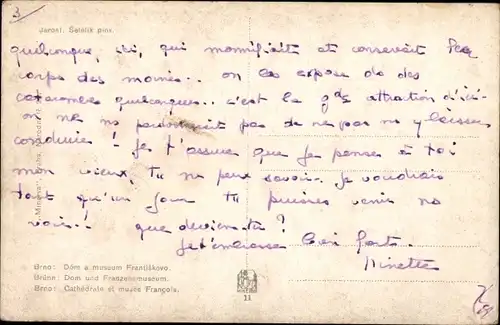 3
Jarosl. Šetelík pinx.
quelconque, ici, qui momifiait et conservait les
corps des moines.. on les expose ds des
catacombes quelconques.. c'est la gde attraction d'ici-
on ne me pas de ne pas m'y laisser
conduire! Je t'assure que je pense à toi
mon vieux, tu ne peux savoir. Je voudrais
tant qu'un jour tu puisses venir me
voir! que deviens-tu?
Je t'embrasse bien fort.
Ninette
"Minerva", Praha.
Brno: Dóm a museum Františkovo.
Brünn: Dom und Franzensmuseum.
Brno: Cathédrale et musée François.
11